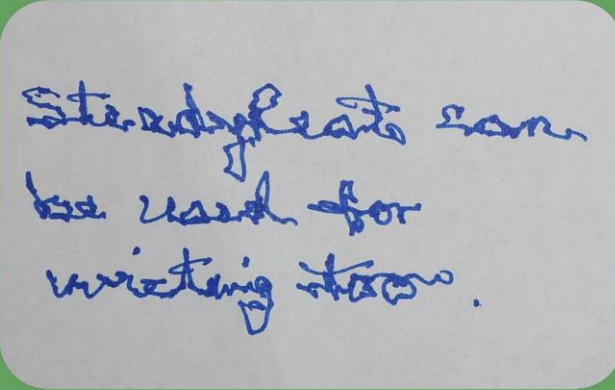 Steadyhearts can
be used for
writing too.